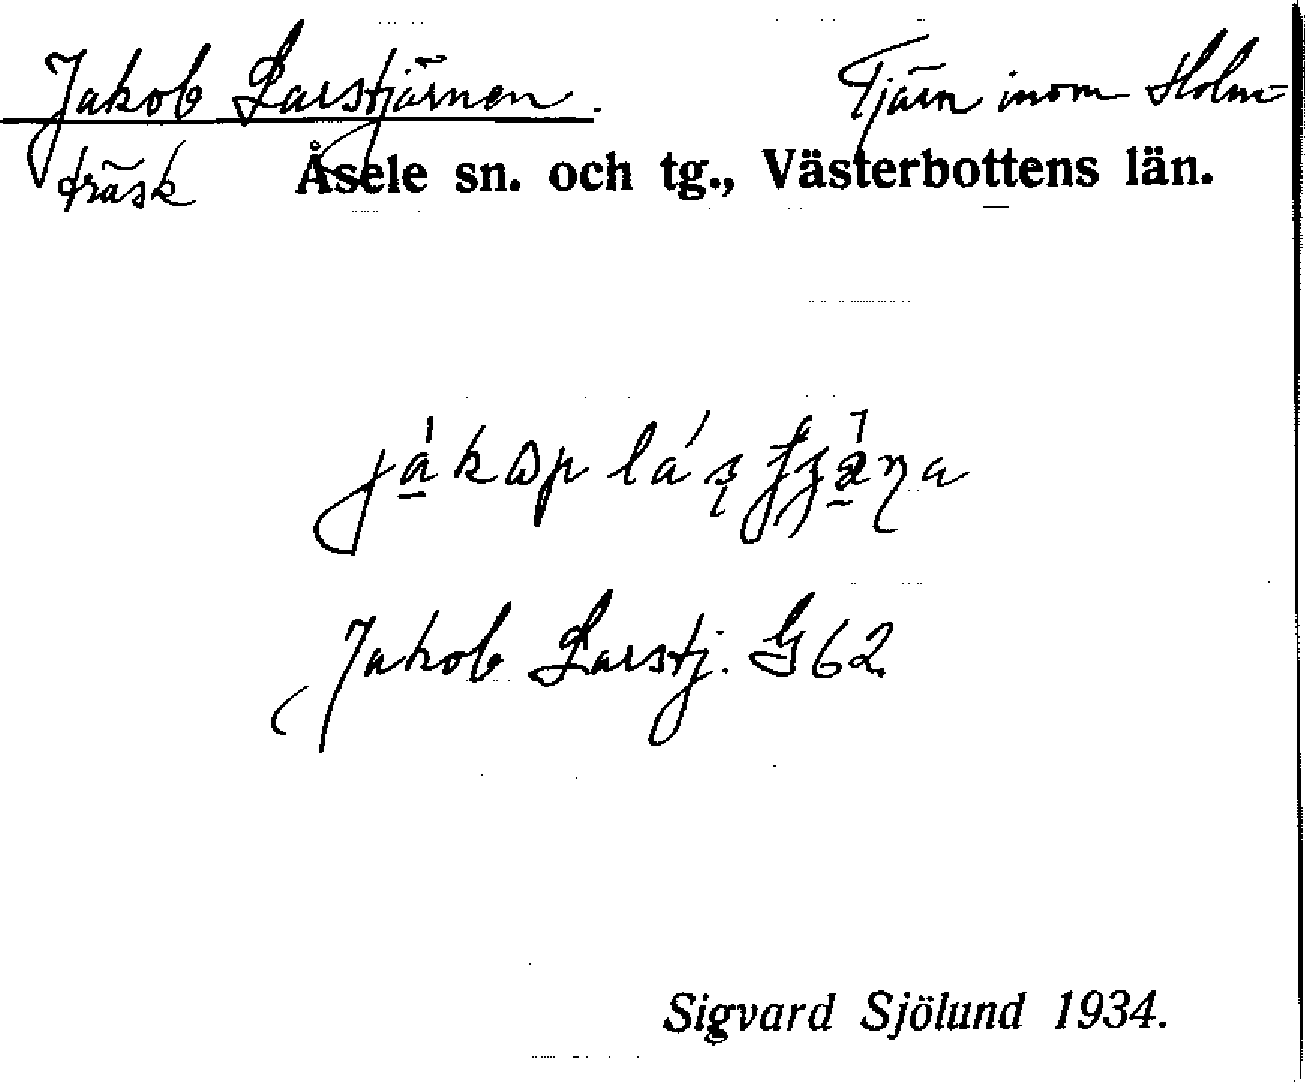 Jakob Larstjärnen. Tjärn inom Holm-
träsk Åsele sn. och tg., Västerbottens län.
Jakob Larstj. G62
Sigvard Sjölund 1934.